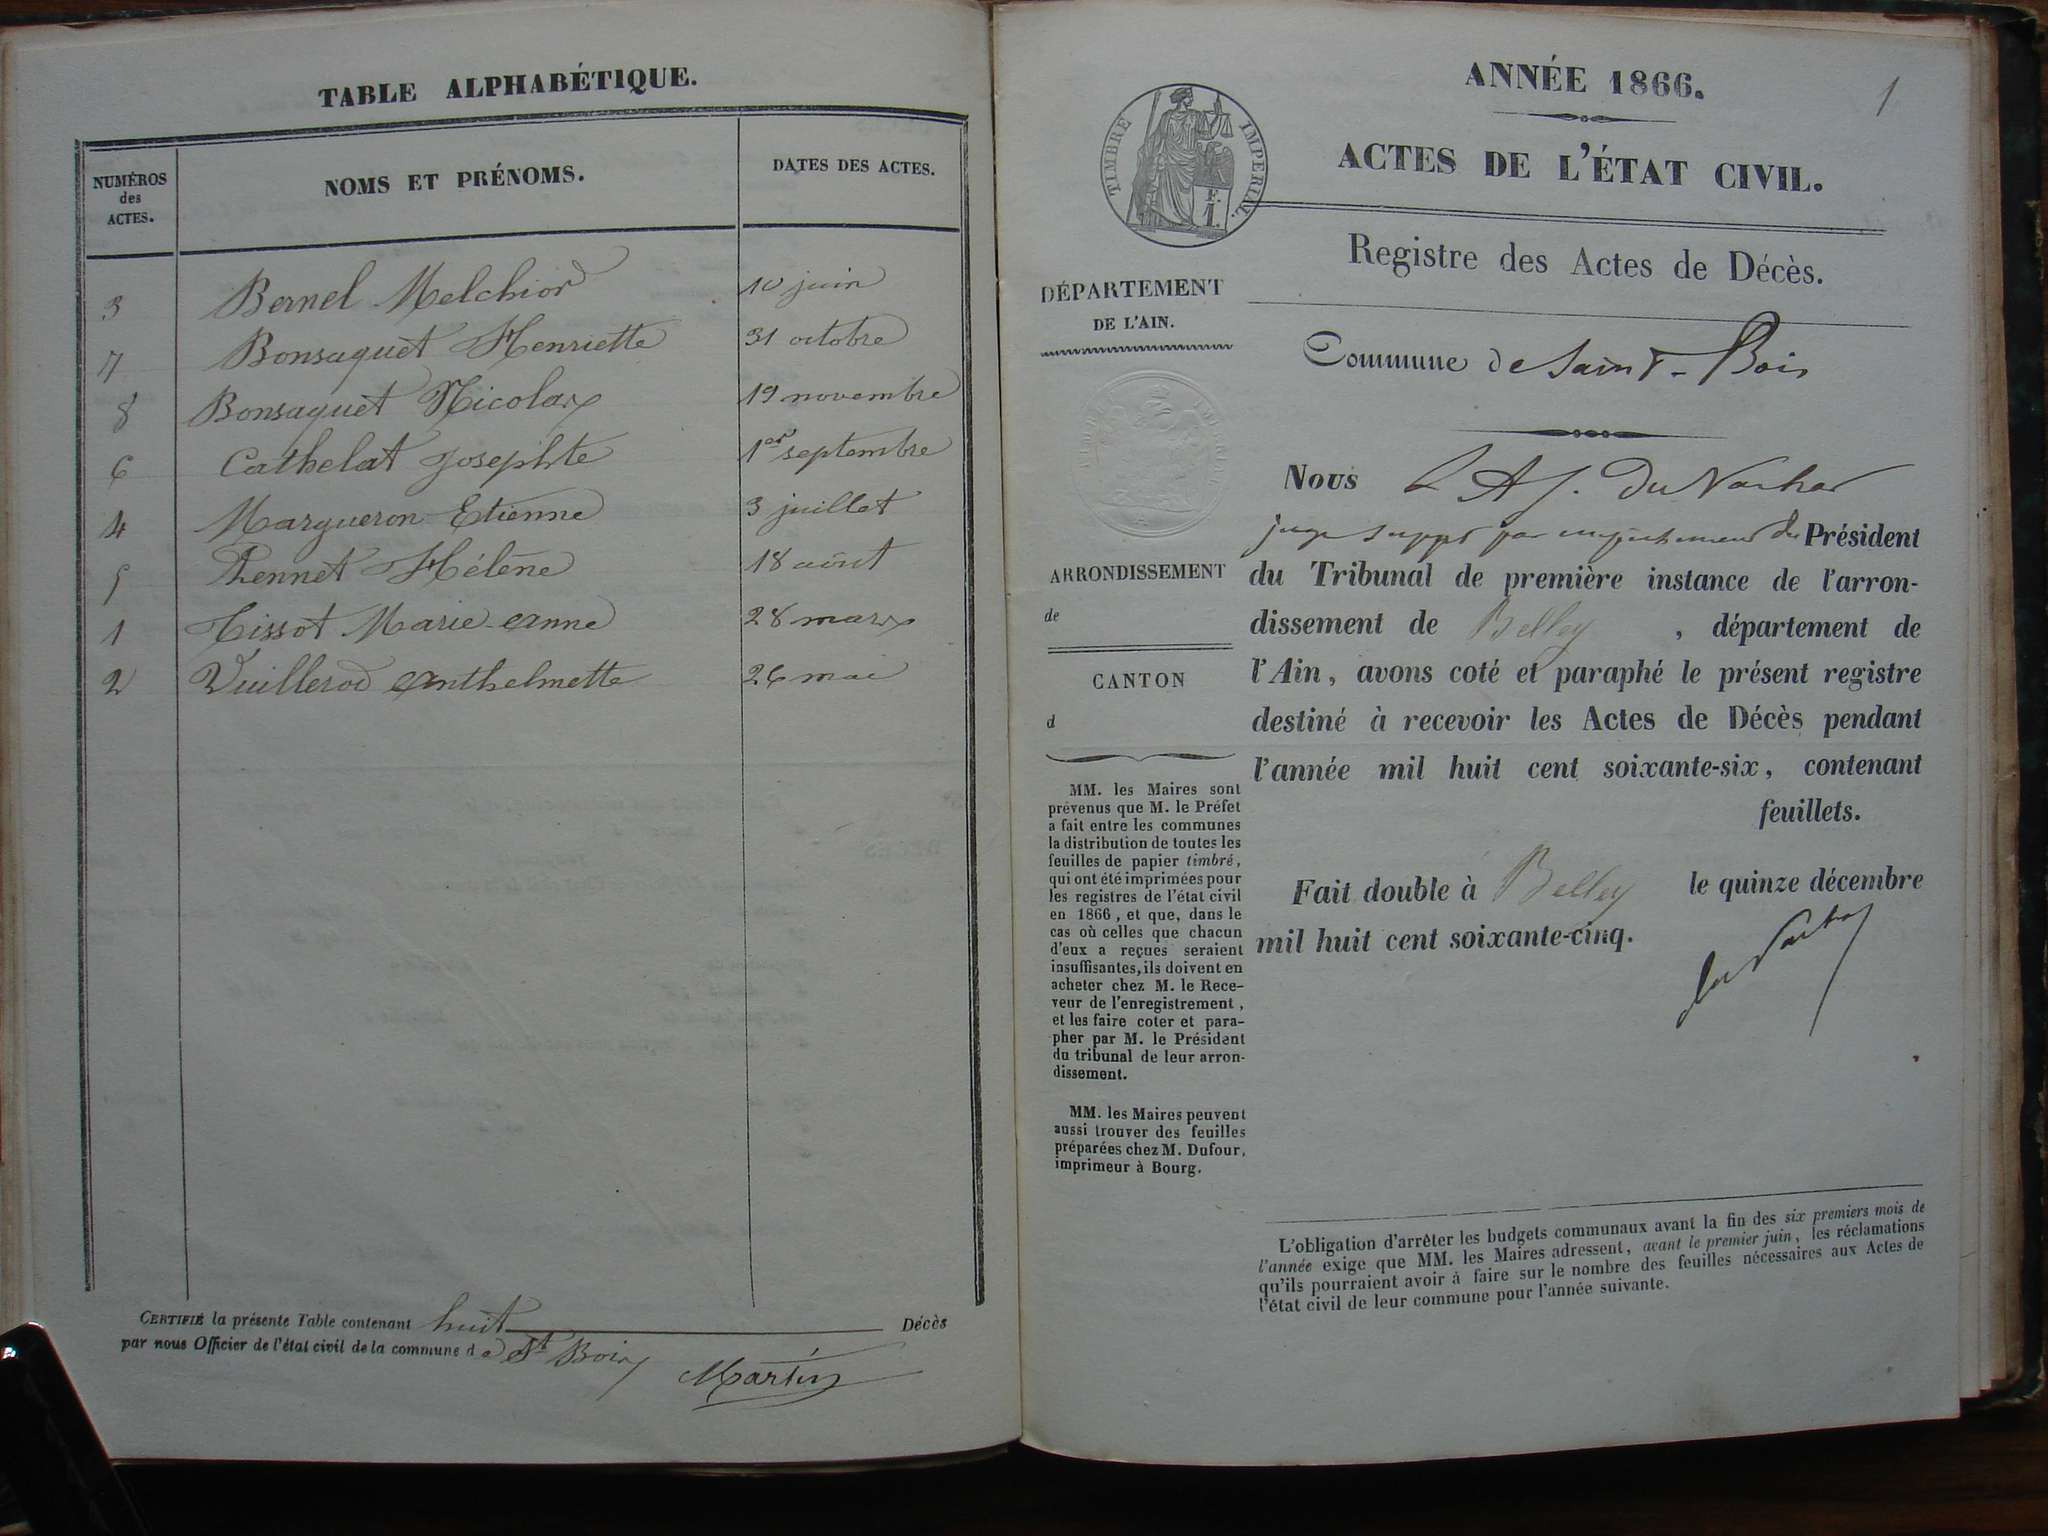 TABLE ALPHABÉTIQUE.
NUMÉROS des ACTES. NOMS ET PRÉNOMS. DATES DES ACTES.
3 Bernel Melchior 10 juin
7 Bonsaquet Henriette 31 octobre
8 Bonsaquet Nicolas 19 novembre
6 Cathelat Josephte 1er septembre
4 Margueron Etienne 3 juillet
5 Pennet Hélène 18 août
1 Tissot Marie-anne 28 mars
2 Vuillerod anthelmette 26 mai
CERTIFIÉ la présente Table contenant huit Décès
par nous Officier de l'état civil de la commune de St Bois
Martin
1
ANNÉE 1866.
TIMBRE IMPERIAL.
ACTES DE L'ÉTAT CIVIL.
Registre des Actes de Décès.
DÉPARTEMENT
DE L'AIN.
Commune de Saint-Bois
ARRONDISSEMENT
de
CANTON
d
MM. les Maires sont
prévenus que M. le Préfet
a fait entre les communes
la distribution de toutes les
feuilles de papier timbré,
qui ont été imprimées pour
les registres de l'état civil
en 1866, et que, dans le
cas où celles que chacun
d'eux a reçues seraient
insuffisantes, ils doivent en
acheter chez M. le Rece-
veur de l'enregistrement,
et les faire coter et para-
pher par M. le Président
du tribunal de leur arron-
dissement.
MM. les Maires peuvent
aussi trouver des feuilles
préparées chez M. Dufour,
imprimeur à Bourg.
Nous
juge suppt par empêchement du Président
du Tribunal de première instance de l'arron-
dissement de Belley, département de
l'Ain, avons coté et paraphé le présent registre
destiné à recevoir les Actes de Décès pendant
l'année mil huit cent soixante-six, contenant
feuillets.
Fait double à Belley le quinze décembre
mil huit cent soixante-cinq.
L'obligation d'arrêter les budgets communaux avant la fin des six premiers mois de
l'année exige que MM. les Maires adressent, avant le premier juin, les réclamations
qu'ils pourraient avoir à faire sur le nombre des feuilles nécessaires aux Actes de
l'état civil de leur commune pour l'année suivante.